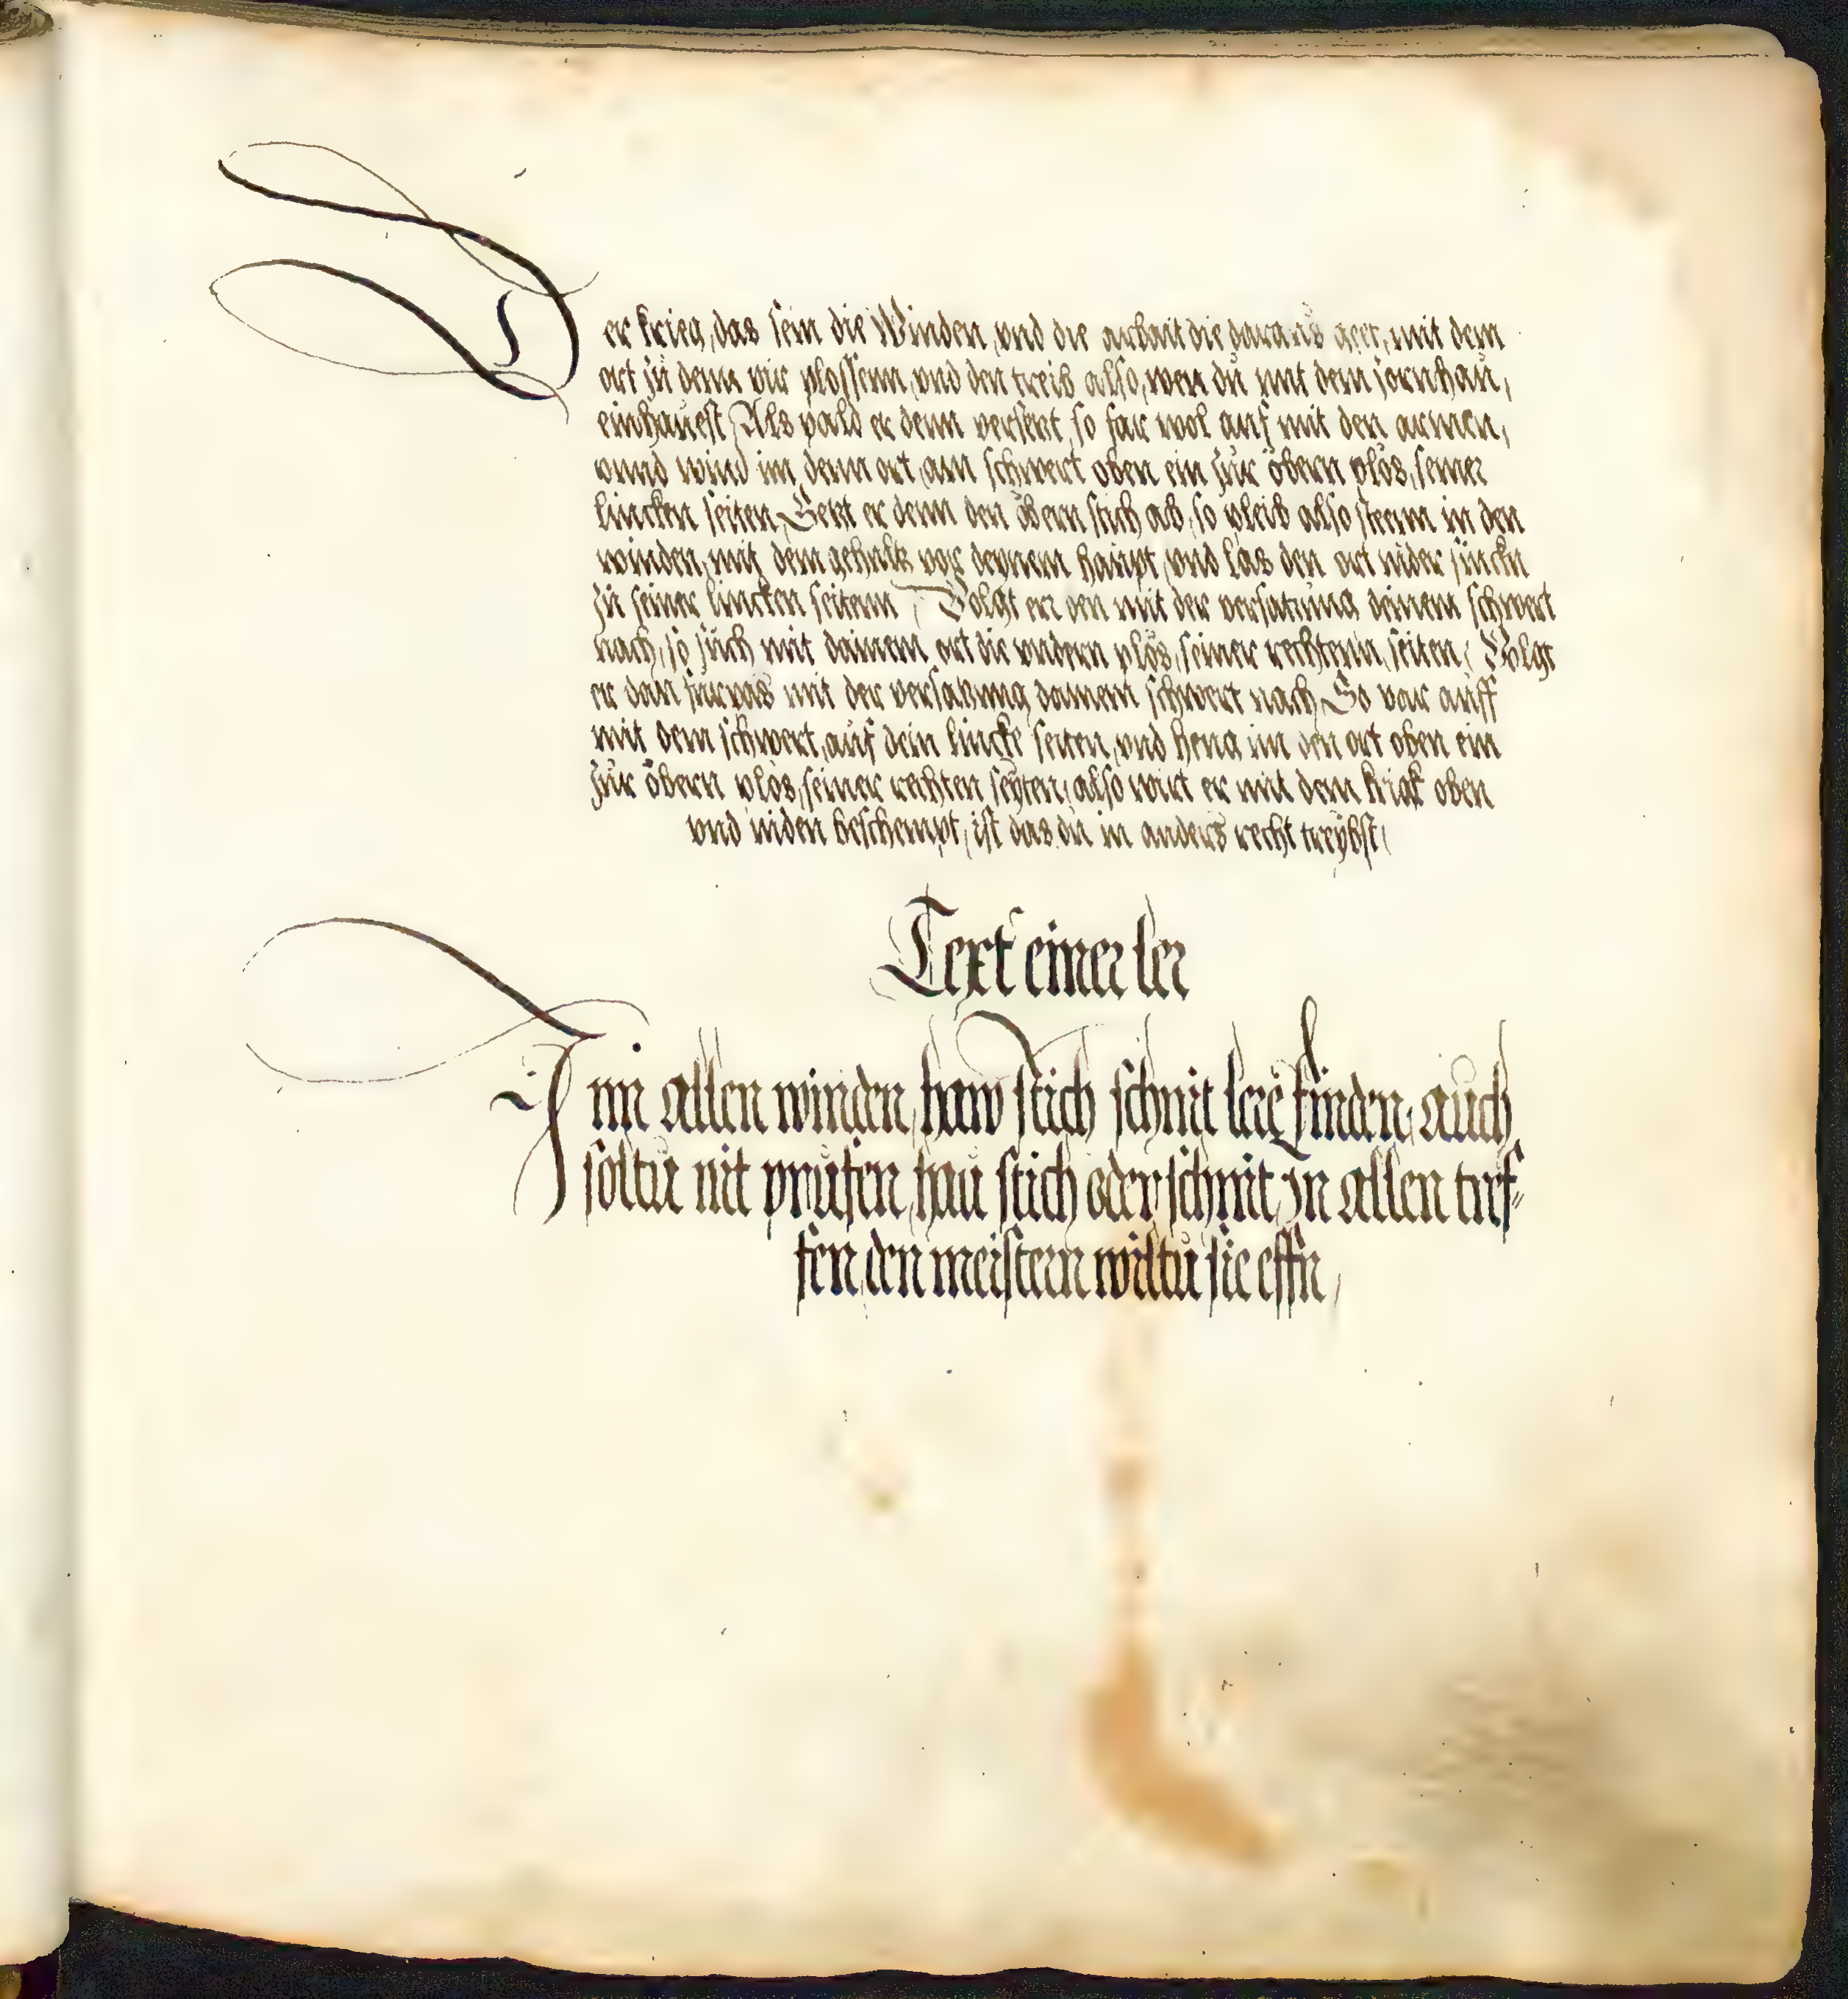 Der krieg, das sein die Winden, vnd die arbait die daraus geet, mit dem
ort zu denn vir plossenn, vnd den treib also, wen du mit dem zornhau,
einhauest Als pald er denn versetzt, so far wol auf mit den armen,
vnnd wind im denn ort, am schwert oben ein zur öbern plös, seiner
lincken seiten, Setzt er denn den öbern stich ab, so pleib also steenn in den
winden, mit dem gehultz vor deynem haupt, vnd las den ort nider sinckn
zu seiner lincken seitenn, Volgt err den mit der versatzung deinem schwert
nach, so such mit dainem ort die vndern plös, seiner rechtenn, seiten, Volgt
er dan furpas mit der versatzung dainem schwert nach, So var auff
mit dem schwert, auf dein lincke seiten, vnd heng im den ort oben ein
zur öbern plös, seiner rechten seyten, also wirt er mit dem krigk oben
vnd niden beschempt, ist das du in anders recht treybst,
Text einer ler
Inn allen winden, haw stich schnit lere finden, auch
soltu nit prufen, hau stich oder schnit, Jn allen tref-
fen, den meistern wiltu sie effn,